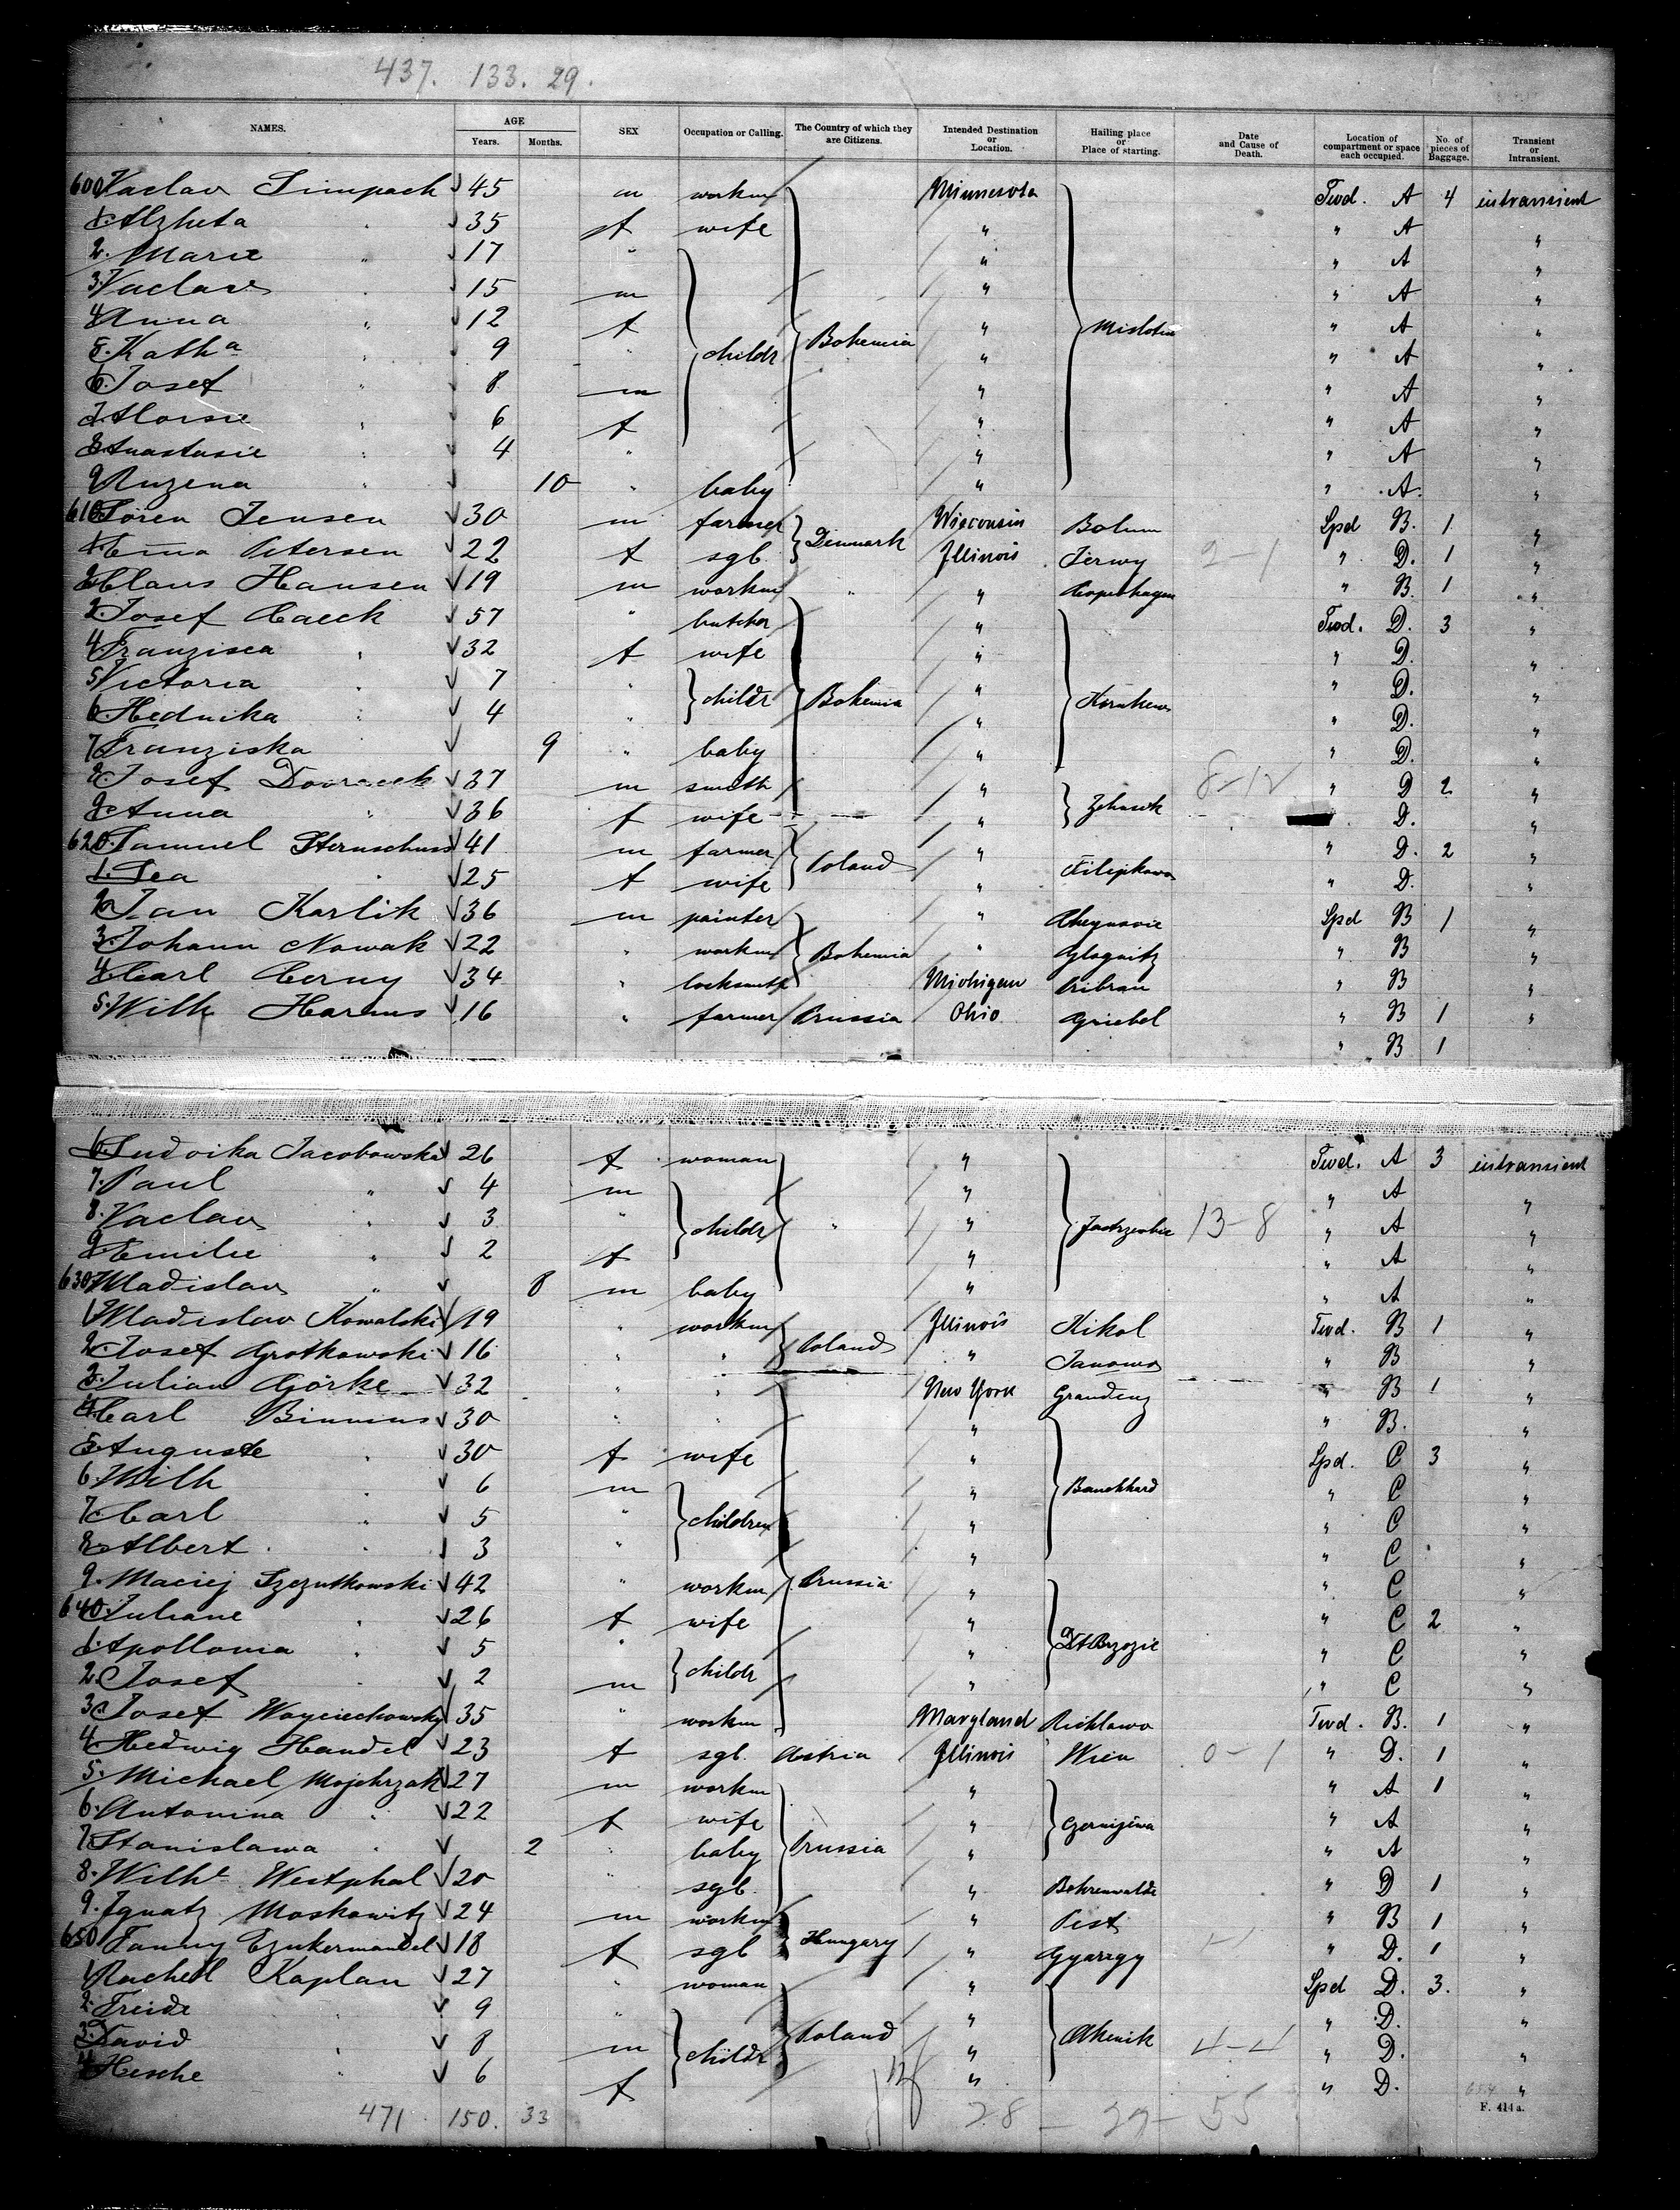 437. 133. 29.
NAMES. AGE Years. Months. SEX Occupation or Calling. The Country of which they are Citizens. Intended Destination or Location. Hailing place or Place of starting. Date and Cause of Death. Location of compartment or space each occupied. No. of pieces of Baggage. Transient or Intransient.
600 Vaclav Simpach 45 m workm Minnesota Twd. A 4 intransient
1. Alzheta " 35 f wife " " A "
2. Marie " 17 " " " A "
3. Vaclav " 15 m " " A "
4. Anna " 12 f " " A "
5. Katha " 9 " childr Bohemia " " A "
6. Josef " 8 m " " A "
7. Aloisie " 6 f " " A "
8. Anastasie " 4 " " " A "
9. Ruzena " 10 " baby " " A. "
610. Soren Jensen 30 m farmer Denmark Wisconsin Spd B. 1 "
1. Emma Petersen 22 f sgl. Illinois 2-1 " D. 1 "
2. Claus Hansen 19 m workm " " Copenhagen " B. 1 "
3. Josef 57 " butcher " Twd. D. 3 "
4. Franzisca " 32 f wife " " D. "
5. Victoria " 7 " childr Bohemia " " D. "
6. Hednika " 4 " " " D. "
7. Franziska 9 " baby " " D. "
8. Josef 37 m smith " 8-12 " D 2 "
9. Anna " 36 f wife " D. "
620. Samuel Sternschuss 41 m farmer Poland " " D. 2 "
1. Lea " 25 f wife " " D. "
2. Jan Karlik 36 m painter " Spd B 1 "
3. Johann Nowak 22 " workm Bohemia " Glognitz " B "
4. Carl Cerny 34 " locksmith Michigan Pribram " B "
5. Wilh Harms 16 " farmer Prussia Ohio Griebel " B 1 "
" B 1
6. Ludvika Jacobowska 26 f woman " Twd. A 3 intransient
7. Paul " 4 m " " A "
8. Vaclav " 3 " childr " " 13-8 " A "
9. Emilie " 2 f " " A "
630 Wladislav " 8 m baby " " A "
1. Wladislav Kowalski 19 " workm Poland Illinois Kikol Twd. B 1 "
2. Josef Grotkowski 16 " " " Janowo " B "
3. Julian Görke 32 " " New York Graudenz " B 1 "
4. Carl 30 " " " " B. "
5. Auguste " 30 f wife " Spd. C 3 "
6. Wilh " 6 m " " C "
7. Carl " 5 " children " " C "
8. Albert " 3 " " " C "
9. Maciej Szczutkowski 42 " workm Prussia " " C "
640. Juliane " 26 f wife " " C 2 "
1. Apollonia " 5 " childr " " C "
2. Josef " 2 m " " C "
3. Josef Woyciechowsky 35 " workm Maryland Richlawo Twd. B. 1 "
4. Hedwig Handel 23 f sgl. Astria Illinois Wien 0-1 " D. 1 "
5. Michael Majchrzak 27 m workm " " A 1 "
6. Antonina " 22 f wife " " A "
7. Stanislawa " 2 " baby Prussia " " A "
8. Wilhe Westphal 20 " sgl. " " D 1 "
9. Ignatz Moskowitz 24 m workm Hungary " Pest " B 1 "
650 Fanny Czukermandel 18 f sgl " " D. 1 "
1. Rachel Kaplan 27 " woman " Spd D. 3. "
2. Freide 9 " Poland " " D. "
3. David " 8 m childr " 4-4 " D. "
4. Hesche " 6 f " " D. "
471 150. 33 28 - 29 - 55 F. 414 a.